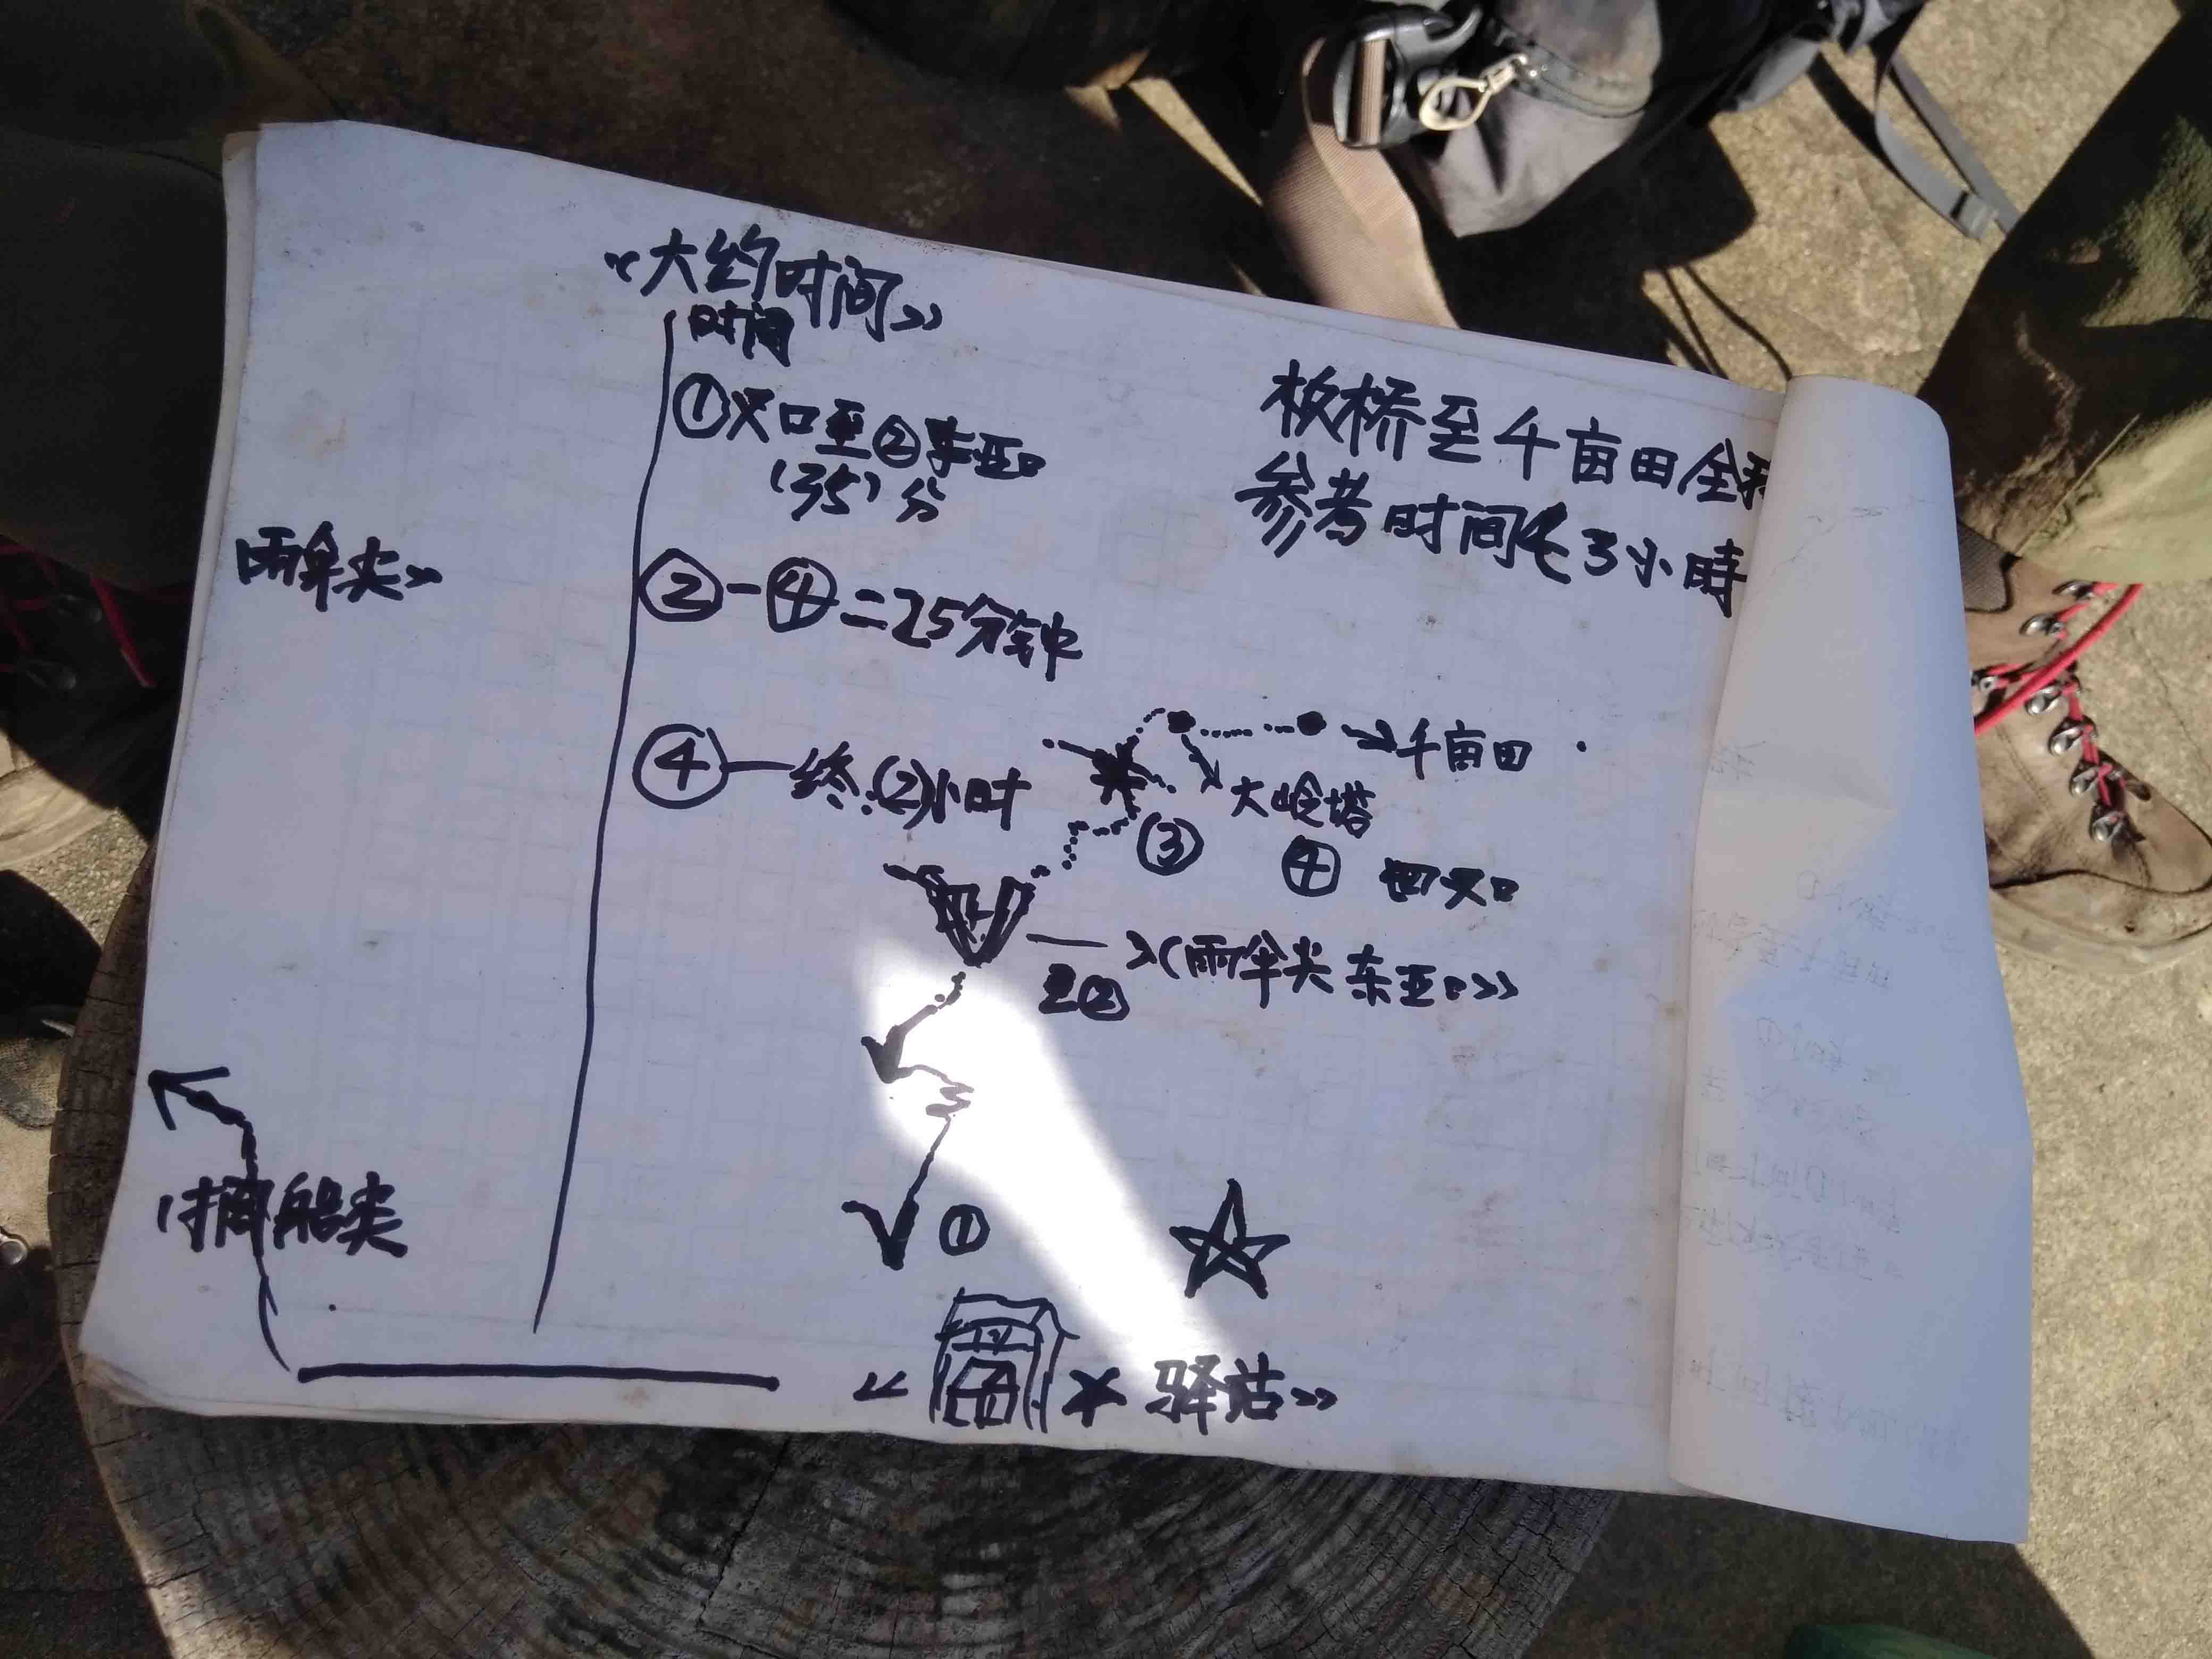 《大约时间》
时间
①叉口至②东亚口
(35)分
②-④=25分钟
④—终:(2)小时
板桥至千亩田全程
参考时间毛3小時
《雨伞尖》
千亩田
大岭塔
③ ④ 四叉口
《雨伞尖东亚口》
②
①
驿站》